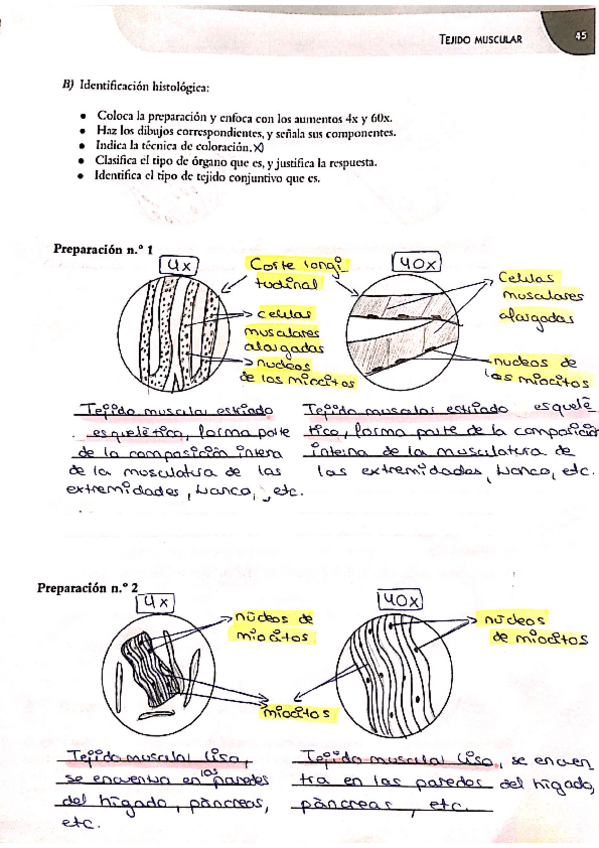 TEJIDO MUSCULAR 45
B) Identificación histológica:
• Coloca la preparación y enfoca con los aumentos 4x y 60x.
• Haz los dibujos correspondientes, y señala sus componentes.
• Indica la técnica de coloración.
• Clasifica el tipo de órgano que es, y justifica la respuesta.
• Identifica el tipo de tejido conjuntivo que es.
Preparación n.º 1
4x
Corte longi
tudinal
40x
celulas
musculares
alargadas
nucleos
de los miocitos
Celulas
musculares
alargadas
nucleos de
los miocitos
Tejido muscular estriado
esquelético, forma parte
de la composición interna
de la musculatura de las
extremidades, tronco, etc.
Tejido muscular estriado esquelé
tico, forma parte de la composición
interna de la musculatura de
las extremidades, tronco, etc.
Preparación n.º 2
4x
núcleos de
miocitos
miocitos
40x
núcleos
de miocitos
Tejido muscular liso,
se encuentra en las paredes
del hígado, páncreas,
etc.
Tejido muscular liso, se encuen
tra en las paredes del hígado,
páncreas, etc.